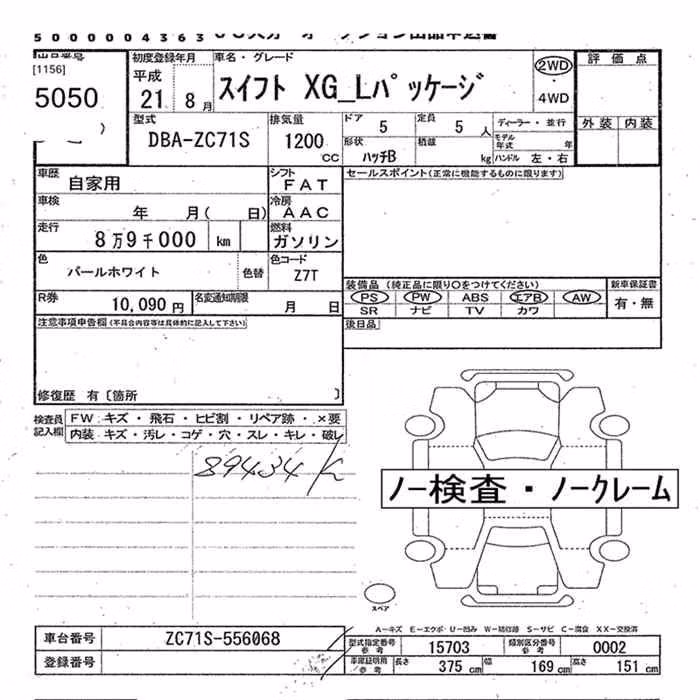 5000004363
出品番号 初度登録年月 車名・グレード 評価点
[1156]
5050
平成 21 8月 スイフト XG_Lパッケージ 2WD ・ 4WD
型式 排気量 ドア 定員 ディーラー・並行 外装 内装
DBA-ZC71S 1200 CC 5 5 人
形状 積載 モデル年式 年
ハッチB kg ハンドル 左・右
車歴 自家用 シフト FAT セールスポイント(正常に機能するものに限ります)
車検 年 月( 日) 冷房 AAC
走行 8万9千000 km 燃料 ガソリン
色 パールホワイト 色替 色コード Z7T
装備品 (純正品に限り○をつけてください) 新車保証書
R券 10,090円 名変通知期限 月 日 PS PW ABS エアB AW 有・無
SR ナビ TV カワ
注意事項申告欄(不具合内容等は具体的に記入して下さい) 後日品
修復歴 有〔箇所 〕
検査員記入欄 FW キズ・飛石・ヒビ割・リペア跡・×要
内装 キズ・汚レ・コゲ・穴・スレ・キレ・破レ
89434 K
ノー検査・ノークレーム
スペア
A-キズ E-エクボ U-凹み W-補修跡 S-サビ C-腐食 XX-交換済
車台番号 ZC71S-556068 型式指定番号 参考 15703 類別区分番号 参考 0002
登録番号 車庫証明用 参考 長さ 375 cm 幅 169 cm 高さ 151 cm